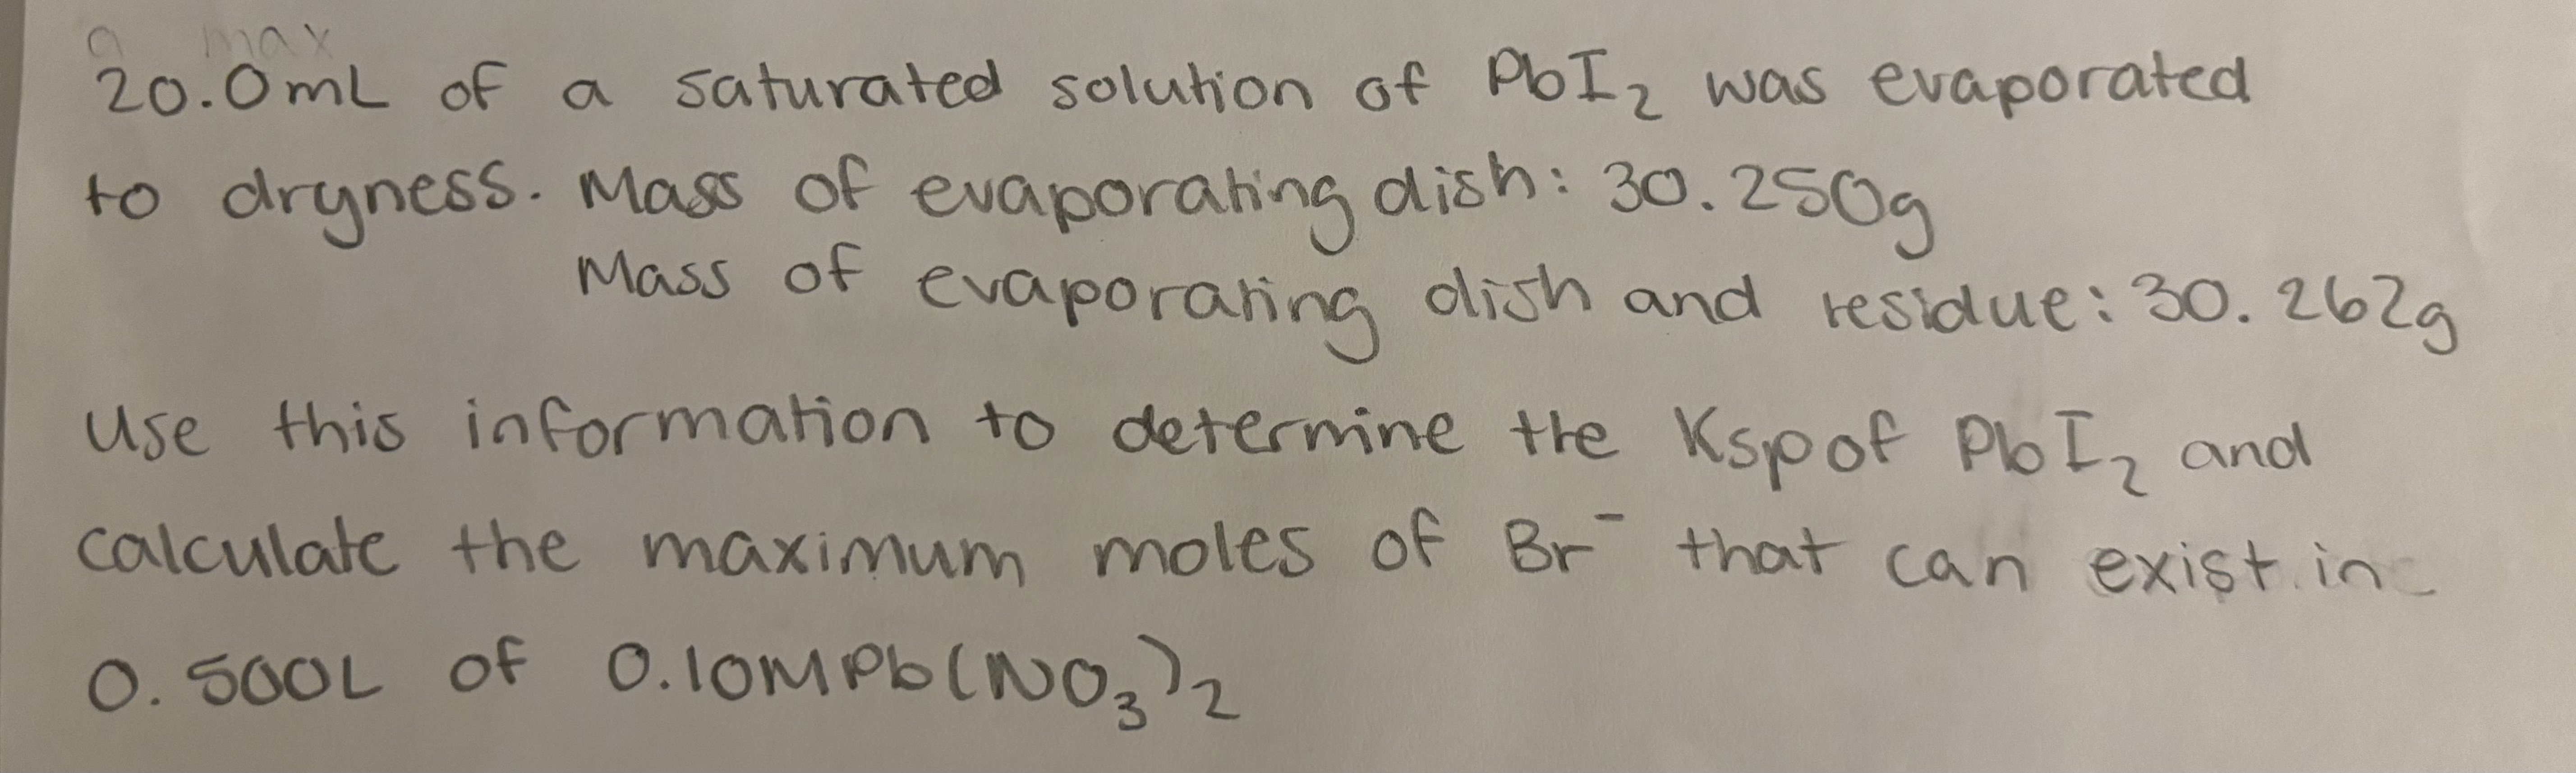 max
20.0mL of a saturated solution of PbI₂ was evaporated
to dryness. Mass of evaporating dish: 30.250g
Mass of evaporating dish and residue: 30.262g
Use this information to determine the Ksp of PbI₂ and
calculate the maximum moles of Br⁻ that can exist in
0.500L of 0.10M Pb(NO₃)₂